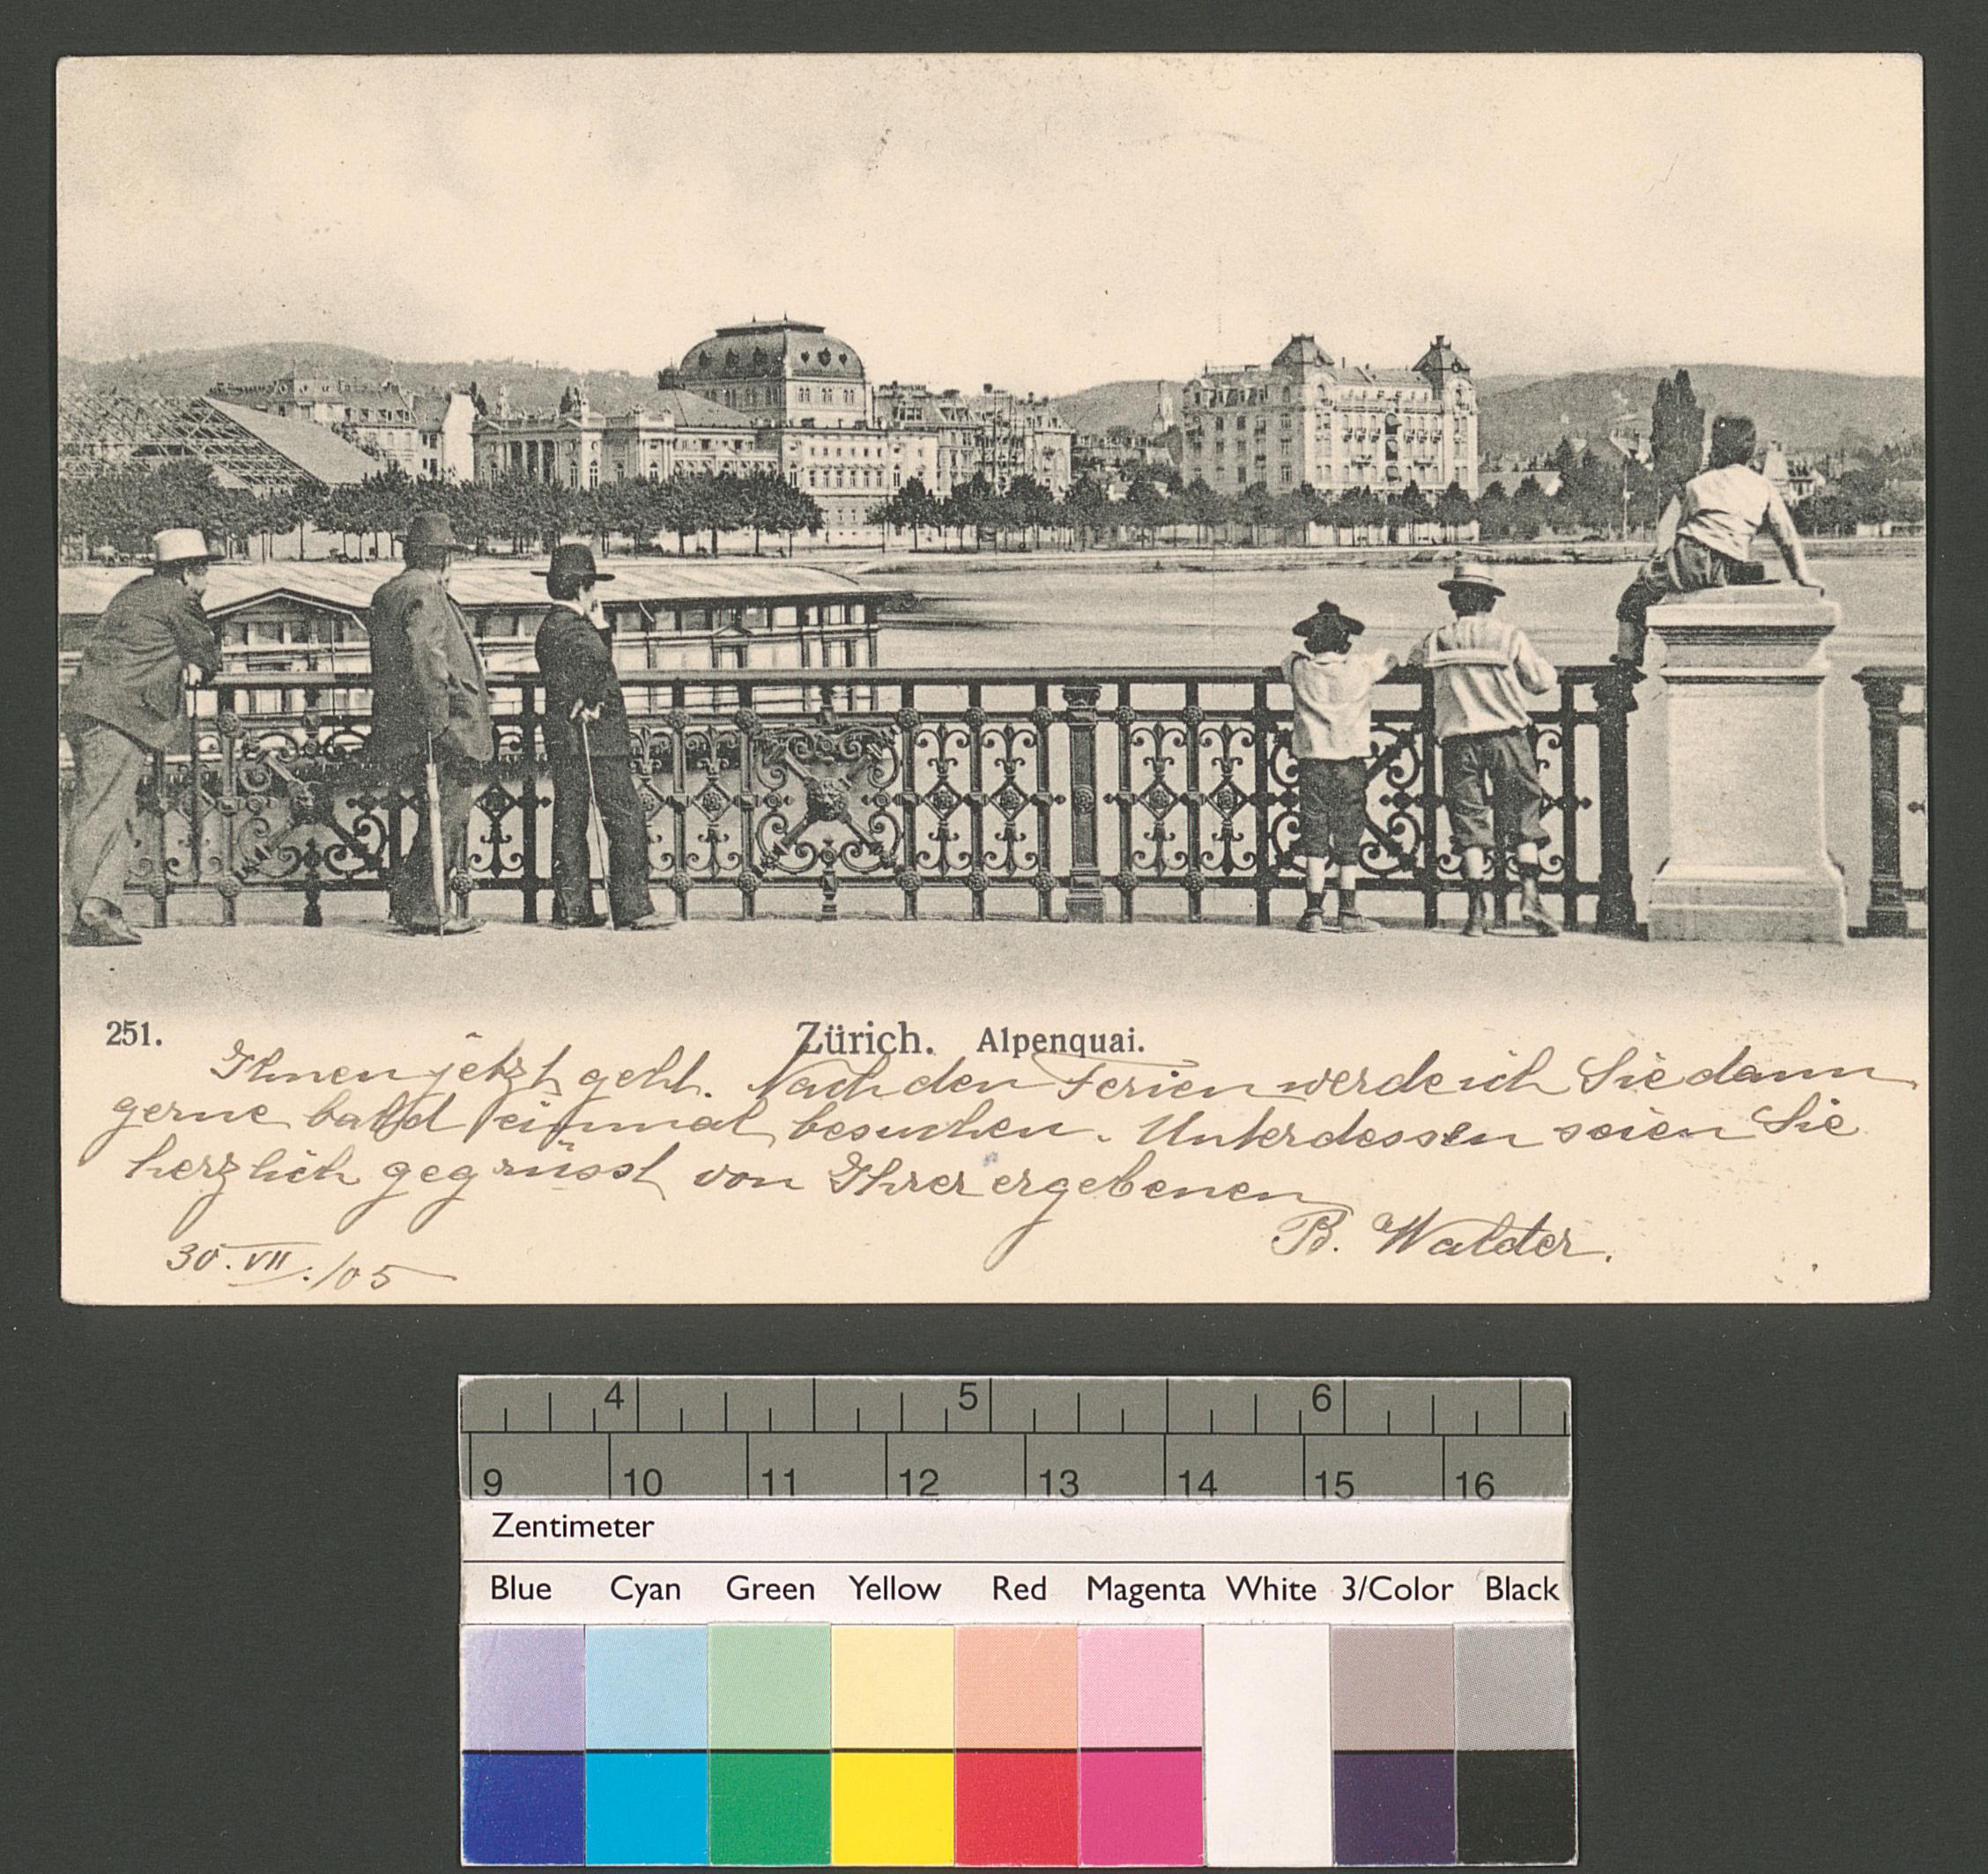 251.
Zürich. Alpenquai.
Ihnen jetzt geht. Nach den Ferien werde ich Sie dann
gerne bald einmal besuchen. Unterdessen seien Sie
herzlich gegrüsst von Ihrer ergebenen
B. Walder.
30. VII. /05
4 5 6
9 10 11 12 13 14 15 16
Zentimeter
Blue Cyan Green Yellow Red Magenta White 3/Color Black